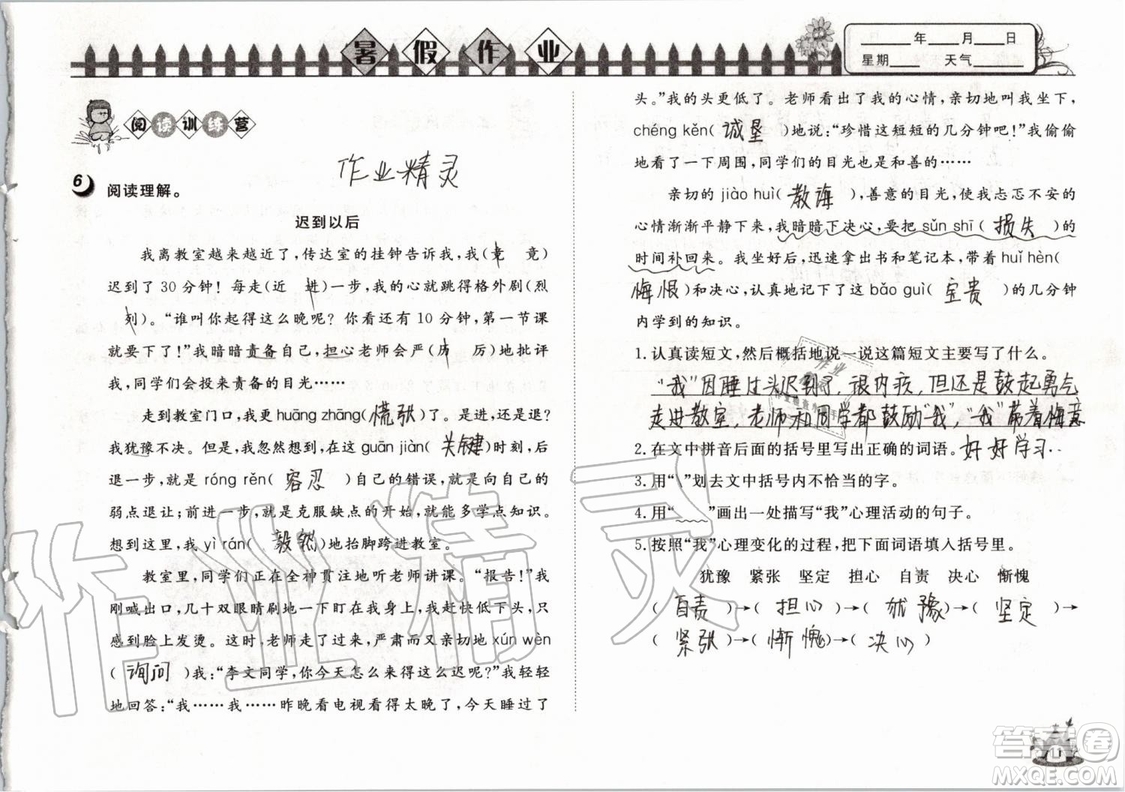 暑假作业
____年____月____日
星期____ 天气____
阅读训练营
作业精灵
6 阅读理解。
迟到以后
我离教室越来越近了，传达室的挂钟告诉我，我(竟 竞)
迟到了 30 分钟！每走(近 进)一步，我的心就跳得格外剧(烈
列)。“谁叫你起得这么晚呢？你看还有 10 分钟，第一节课
就要下了！”我暗暗责备自己，担心老师会严(历 厉)地批评
我，同学们会投来责备的目光……
走到教室门口，我更 huāng zhāng(慌张)了。是进，还是退？
我犹豫不决。但是，在这 guān jiàn(关键)时刻，后退一步，
就是 róng rěn( 容忍 )自己的错误，就是向自己的
弱点退让；前进，就是克服缺点的开始，就能多学点知识。
想到这里，我 yì rán( 毅然 )地抬脚跨进教室。
教室里，同学们正在全神贯注地听老师讲课。“报告！”我
刚喊出口，几十双眼睛刷地一下盯在我身上。这时，我
感到脸上发烫。这时，老师走了过来，严肃而又亲切地 xún wèn
( 询问 )我：“李文同学，你今天怎么来这么迟呢？”我轻轻
地回答：“我……我……昨晚看电视看得太晚了，今天睡过了
头。”我的头更低了。老师看出了我的心情，亲切地叫我坐下，
chéng kěn( 诚垦 )地说：“珍惜这短短的几分钟吧！”我偷偷
地看了一下周围，同学们的目光也充满着期待与鼓励。
亲切的 jiào huì( 教诲 )，善意的目光，使我忐忑不安的
心情渐渐平静下来，我暗暗下决心，要把 sǔn shī( 损失 )的
时间补回来。我坐好后，迅速拿出书和笔记本，带着 huǐ hèn(
悔恨 )和决心，认真地记下了这 bǎo guì( 宝贵 )的几分钟
内学到的知识。
1. 认真读短文，然后概括地说一说这篇短文主要写了什么。
“我”因睡过头迟到了，很内疚，但还是鼓起勇气
走进教室，老师和同学都鼓励“我”，“我”带着悔意
好好学习.
2. 在文中拼音后面的括号里写出正确的词语。
3. 用“\”划去文中括号内不恰当的字。
4. 用“﹏﹏”画出一处描写“我”心理活动的句子。
5. 按照“我”心理变化的过程，把下面词语填入括号里。
犹豫 紧张 坚定 担心 自责 决心 惭愧
( 自责 )→( 担心 )→( 犹豫 )→( 坚定 )→
( 紧张 )→( 惭愧 )→( 决心 )
作业精灵
11
答案圈
MXQE.COM